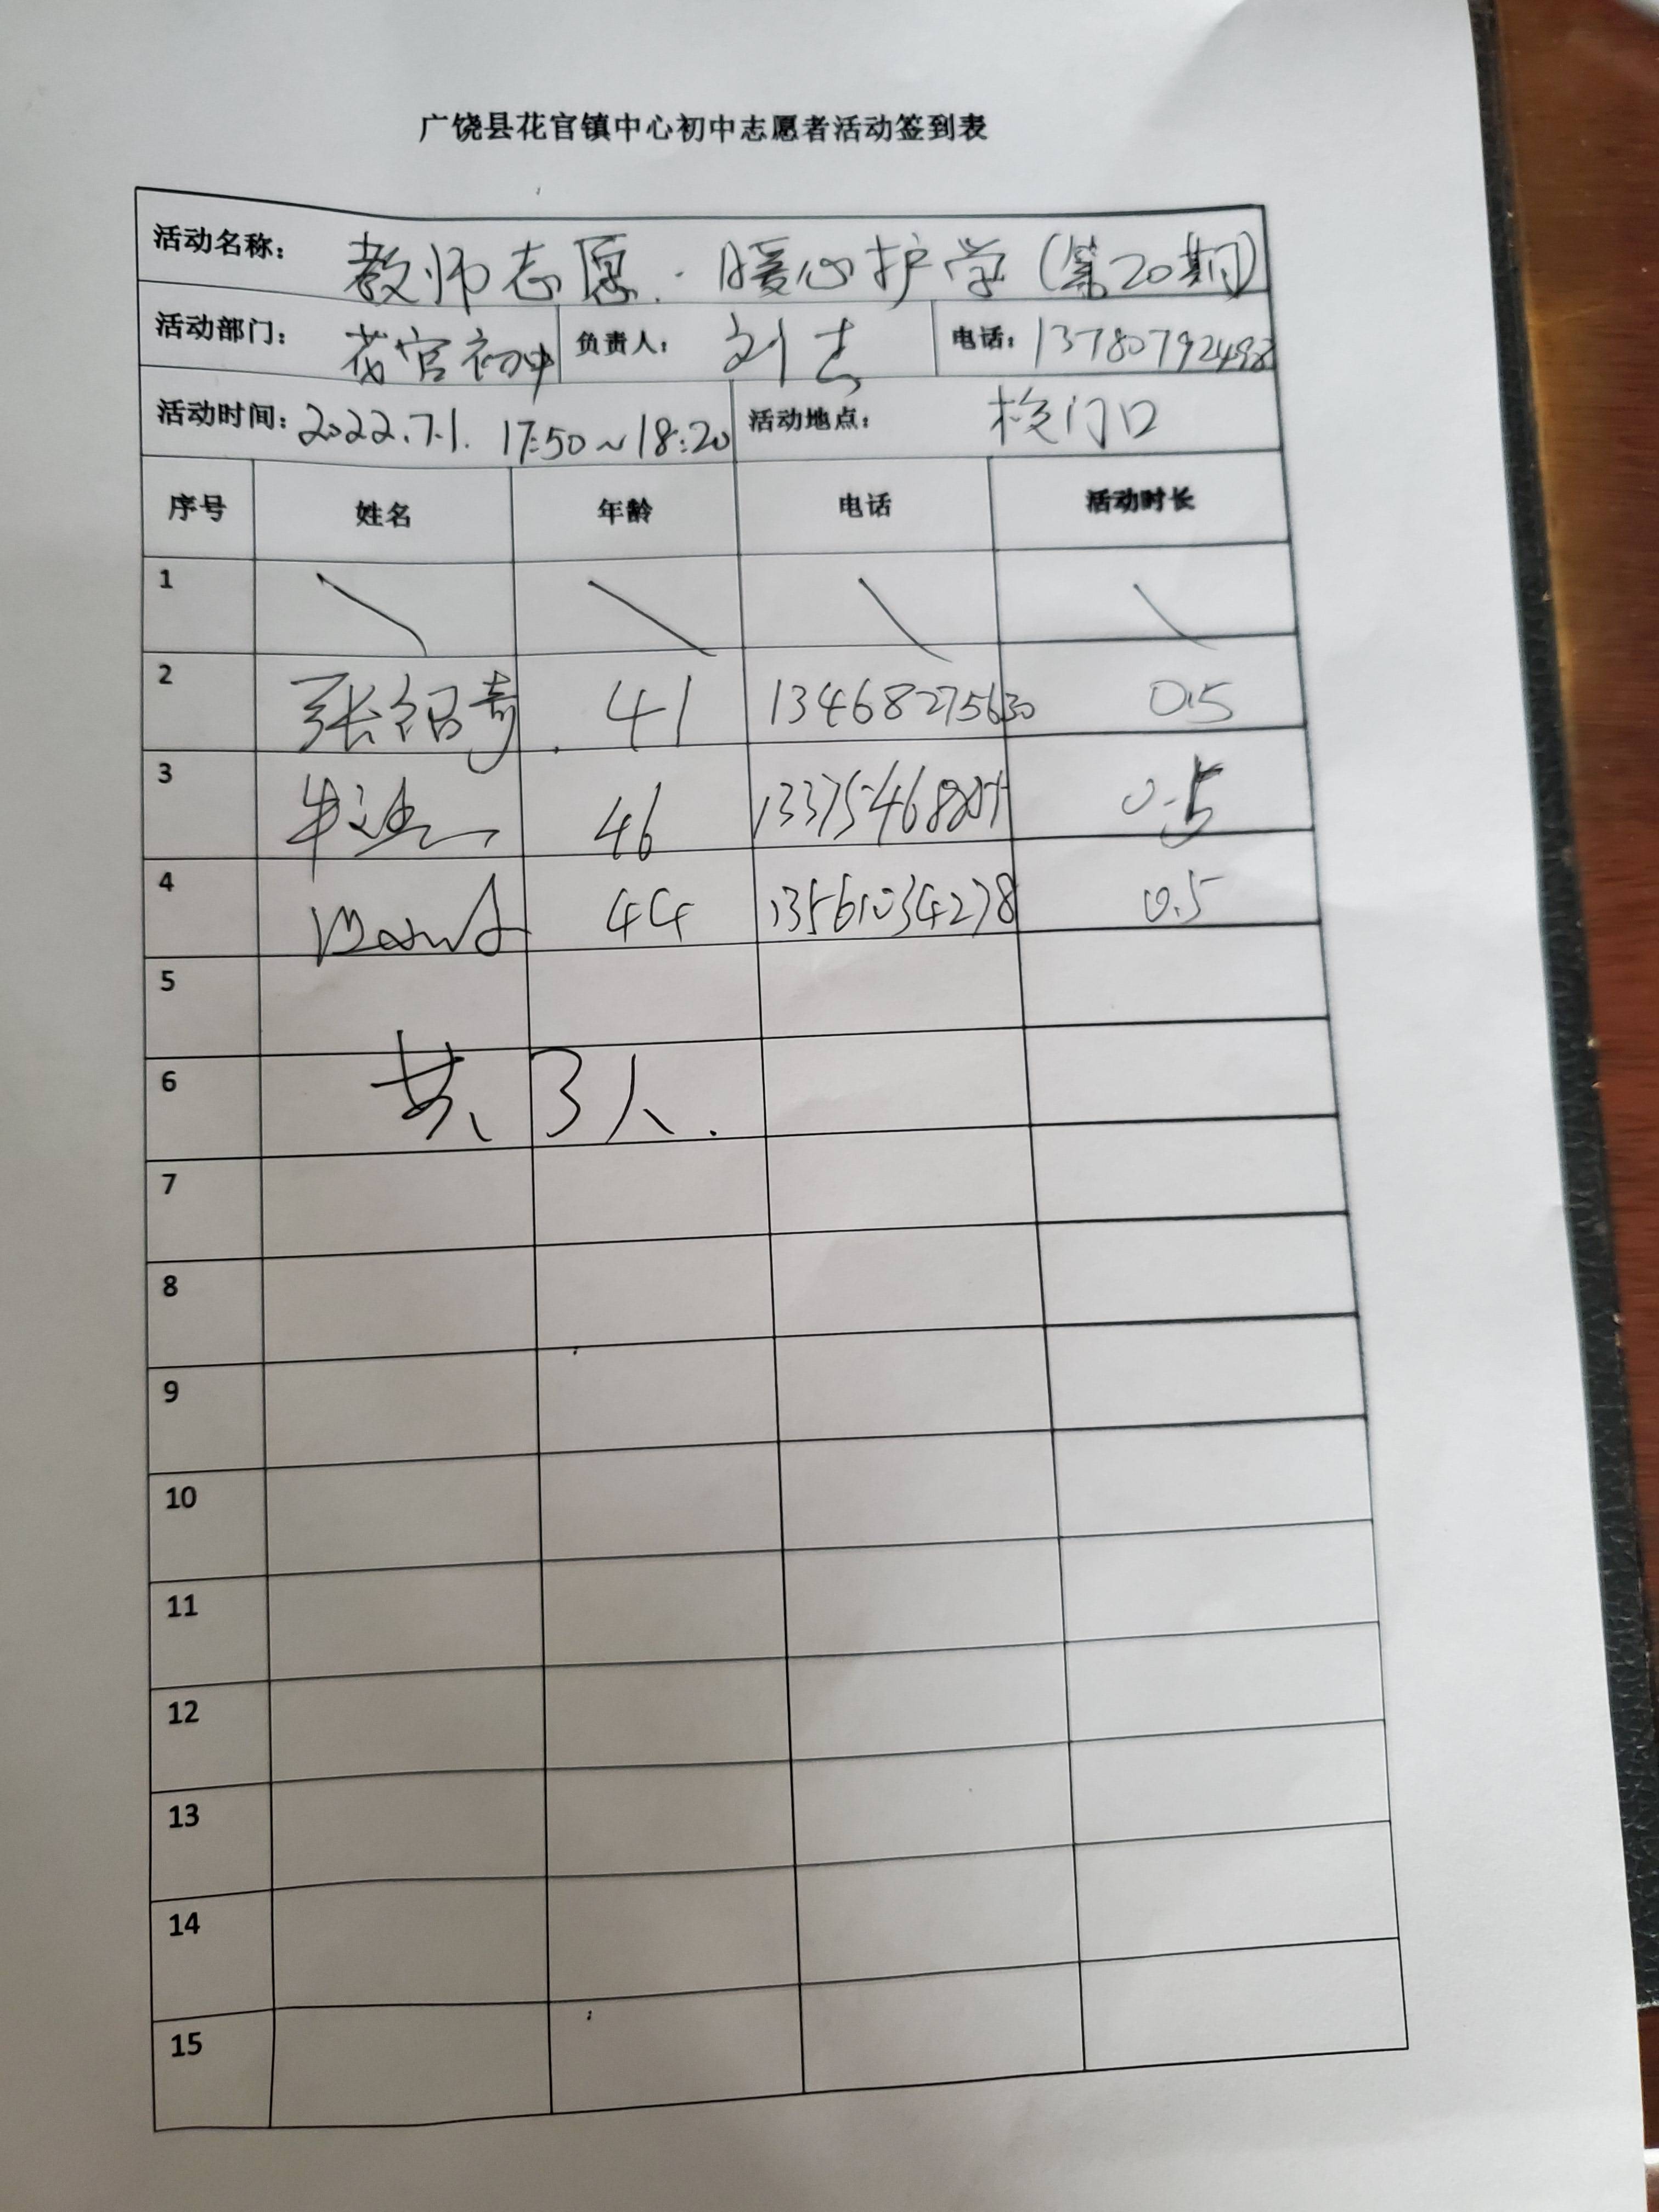 广饶县花官镇中心初中志愿者活动签到表
活动名称： 教师志愿·暖心护学（第20期）
活动部门： 花官初中 负责人： 刘志 电话： 13780792498
活动时间： 2022.7.1. 17:50~18:20 活动地点： 校门口
序号 姓名 年龄 电话 活动时长
1
2 张绍奇 41 13468275630 0.5
3 46 0.5
4 44 13561034278 0.5
5
6 共3人.
7
8
9
10
11
12
13
14
15